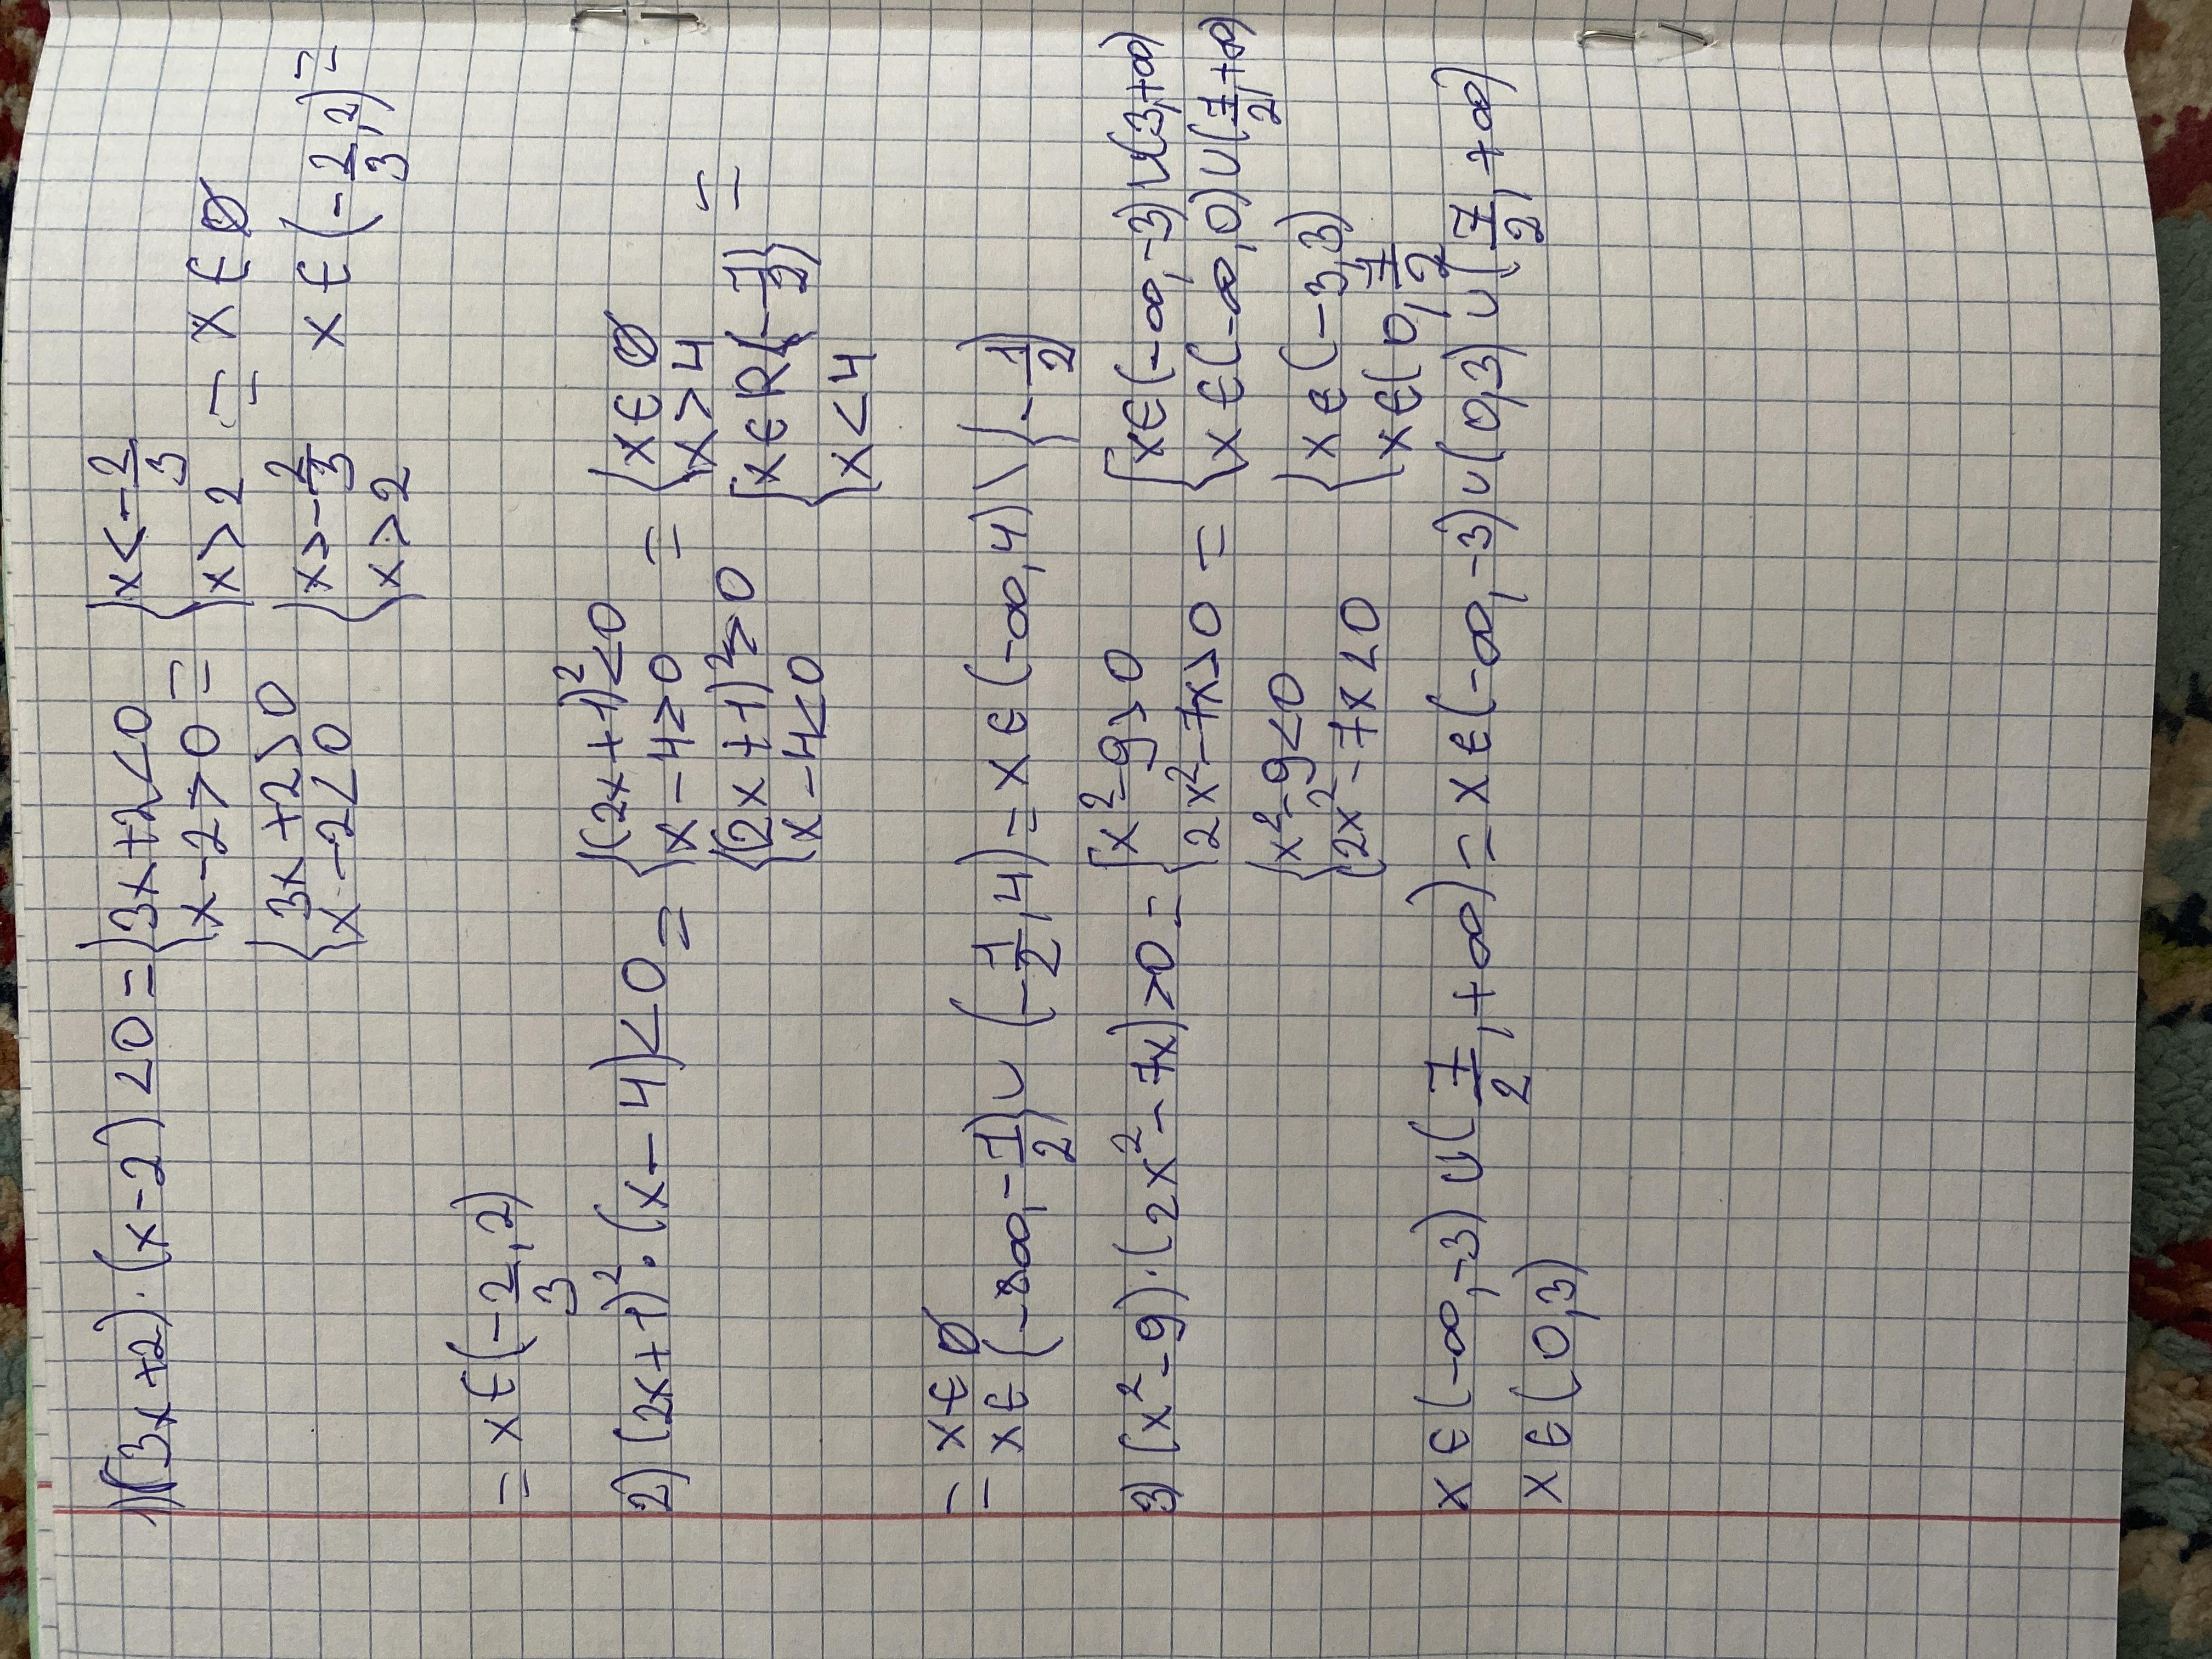 1) (3x+2)·(x-2)<0 = {3x+2<0 {x<-2/3
x-2>0 = x>2 = x∈∅
{3x+2>0 {x>-2/3 x∈(-2/3,2) =
x-2<0 x>2
= x∈(-2/3,2)
2) (2x+1)²·(x-4)<0 = {(2x+1)²<0 {x∈∅
x-4>0 = x>4
{(2x+1)²>0 {x∈R{-1/2} =
x-4<0 x<4
= x∈∅
= x∈(-∞,-1/2)∪(-1/2,4) = x∈(-∞,4)\{-1/2}
3) (x²-9)·(2x²-7x)>0 = {x²-9>0 {x∈(-∞,-3)∪(3,+∞)
2x²-7x>0 = x∈(-∞,0)∪(7/2,+∞)
{x²-9<0 {x∈(-3,3)
2x²-7x<0 x∈(0,7/2
x∈(-∞,-3)∪(7/2,+∞) = x∈(-∞,-3)∪(0,3)∪(7/2,+∞)
x∈(0,3)